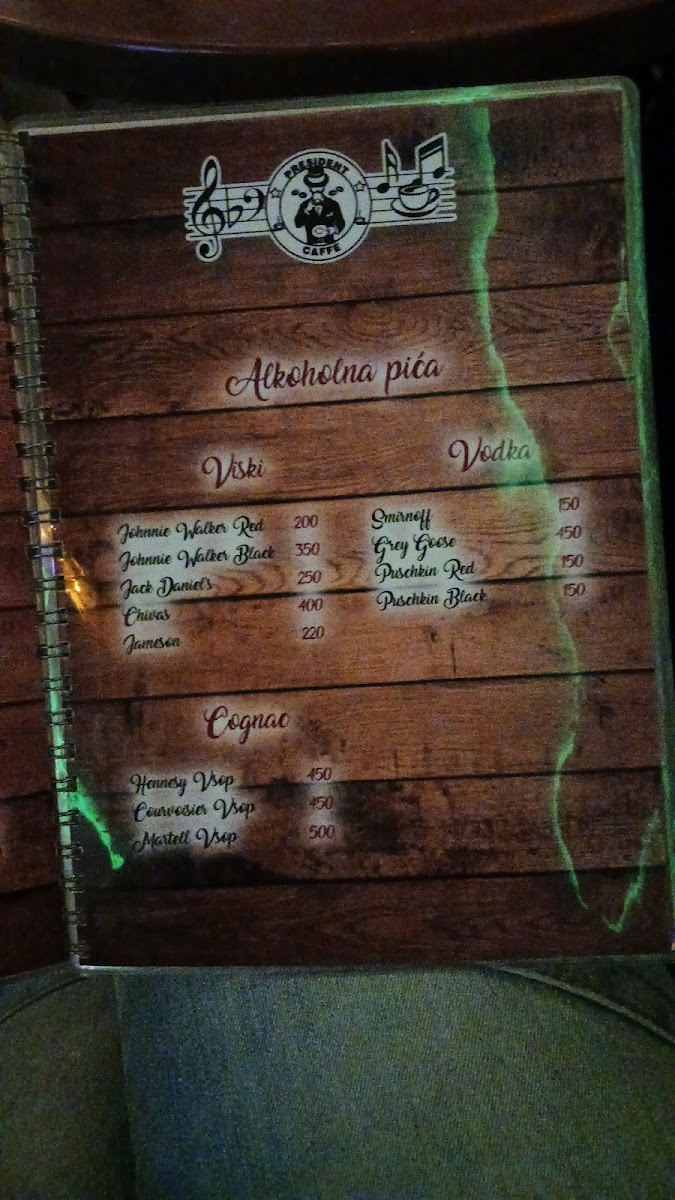 PRESIDENT
CAFFE
Alkoholna pića
Viski
Johnnie Walker Red 200
Johnnie Walker Black 350
Jack Daniel's 250
Chivas 400
Jameson 220
Vodka
Smirnoff 150
Grey Goose 450
Puschkin Red 150
Puschkin Black 150
Cognac
Hennesy Vsop 450
Courvoisier Vsop 450
Martell Vsop 500